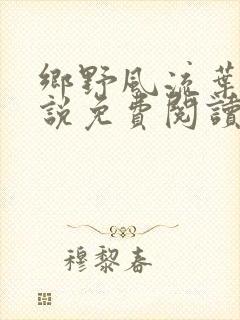 鄉野風流葉
說免費閱讀
穆黎春